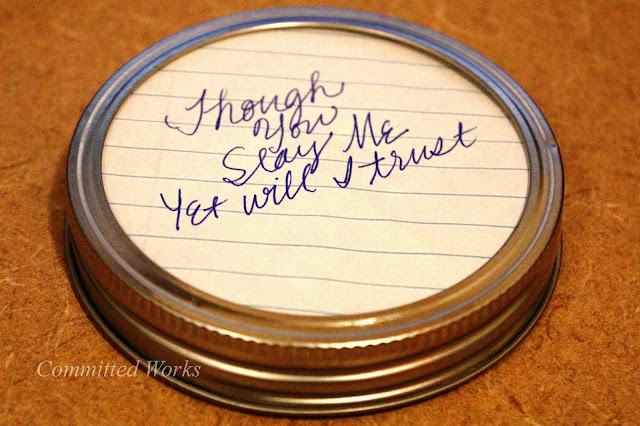 Though
You
Slay Me
Yet will I trust
Committed Works